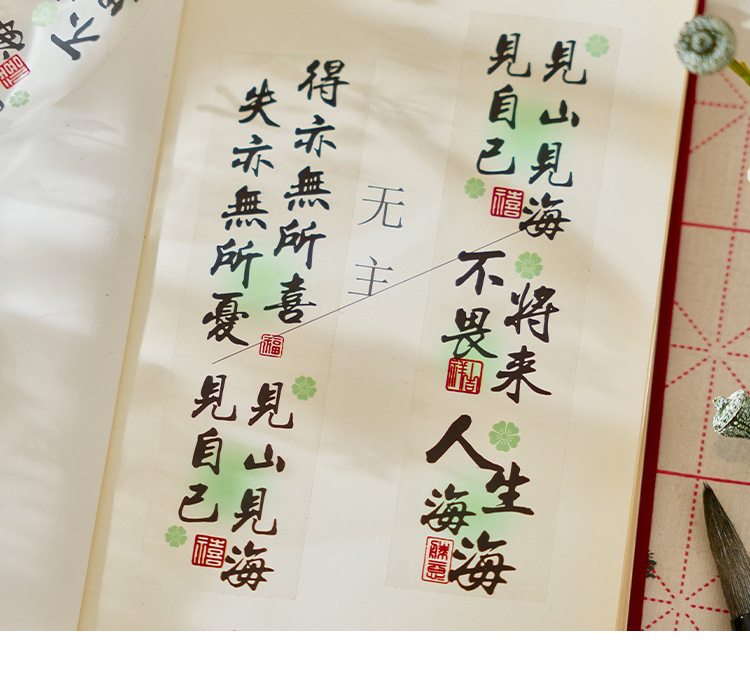 見山見海
見自己
禧
不畏
將来
人生
海海
无主
得亦無所喜
失亦無所憂
福
見山見海
見自己
禧